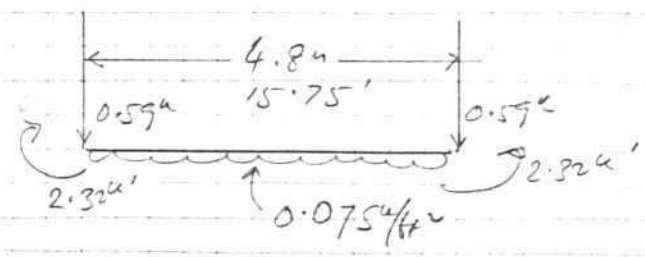 4.8m
15.75'
0.59k 0.59k
2.32k' 2.32k'
0.075k/ft²